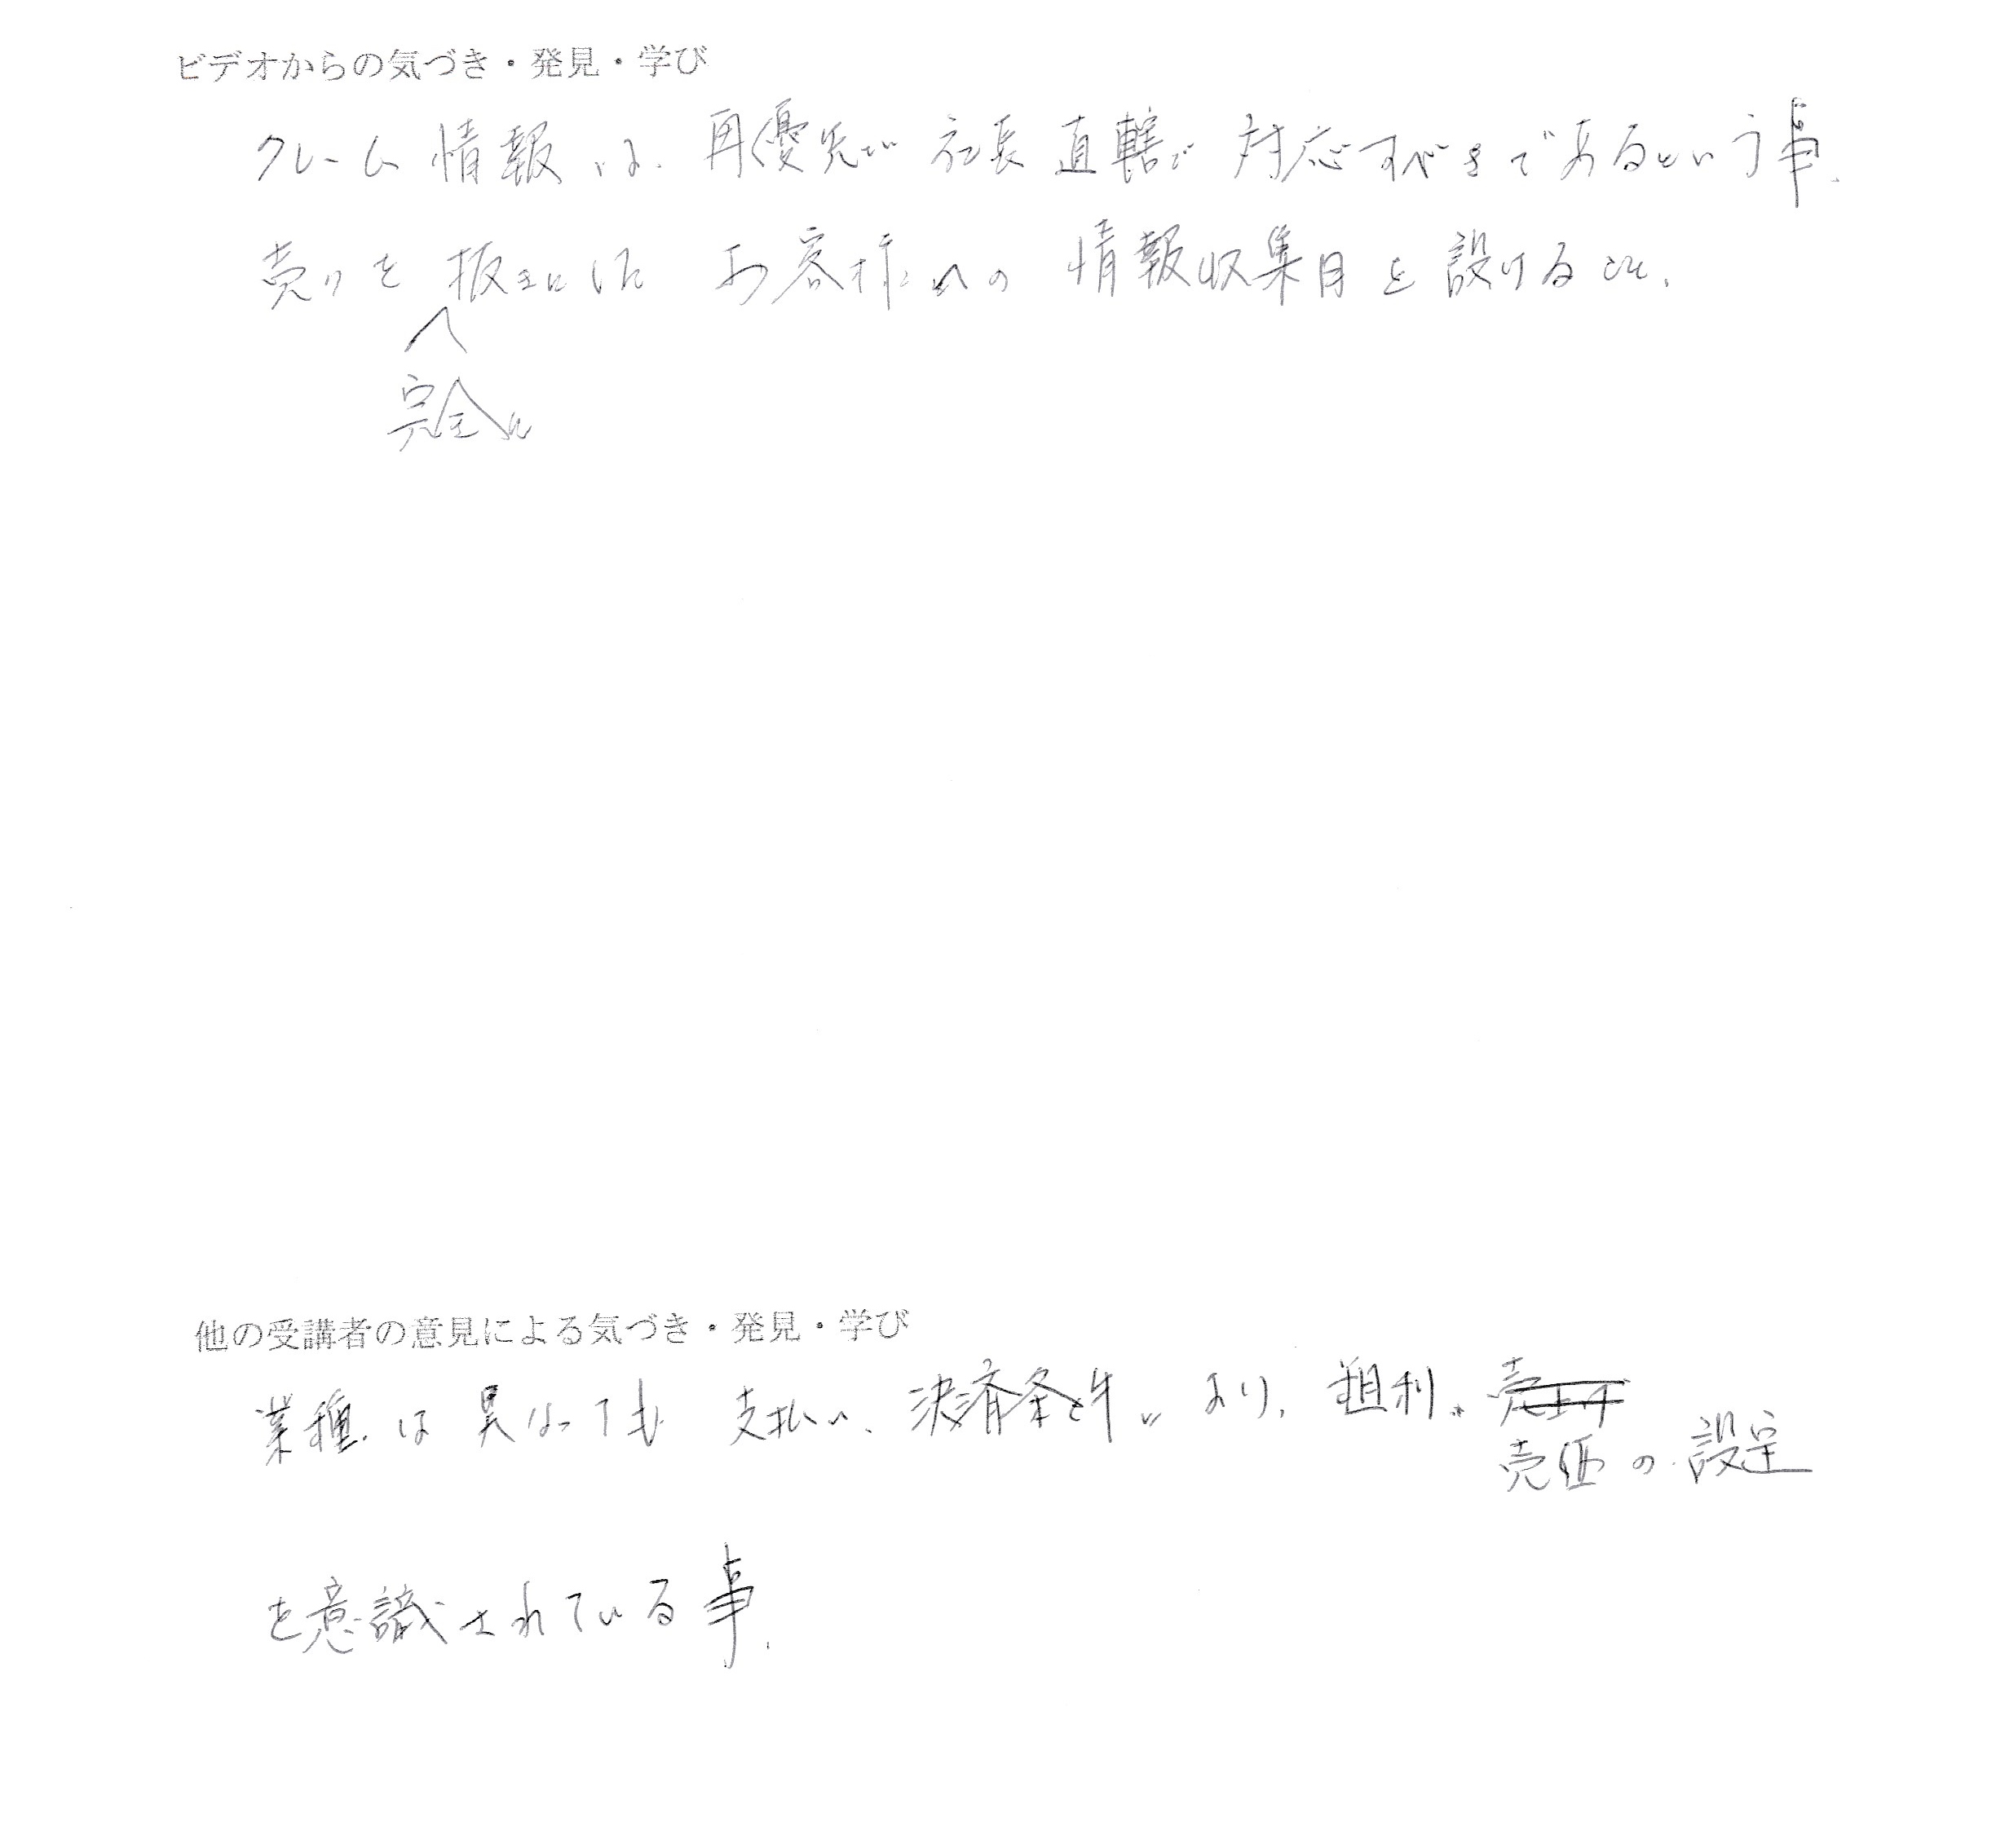 ビデオからの気づき・発見・学び
クレーム情報は、再優先で社長直轄で対応すべきであるという事。
売りを抜きにしたお客様への情報収集日を設けること。
完全に
他の受講者の意見による気づき・発見・学び
業種は異なっても支払い、決済条件により、粗利、売上げ
売価の設定
を意識されている事。